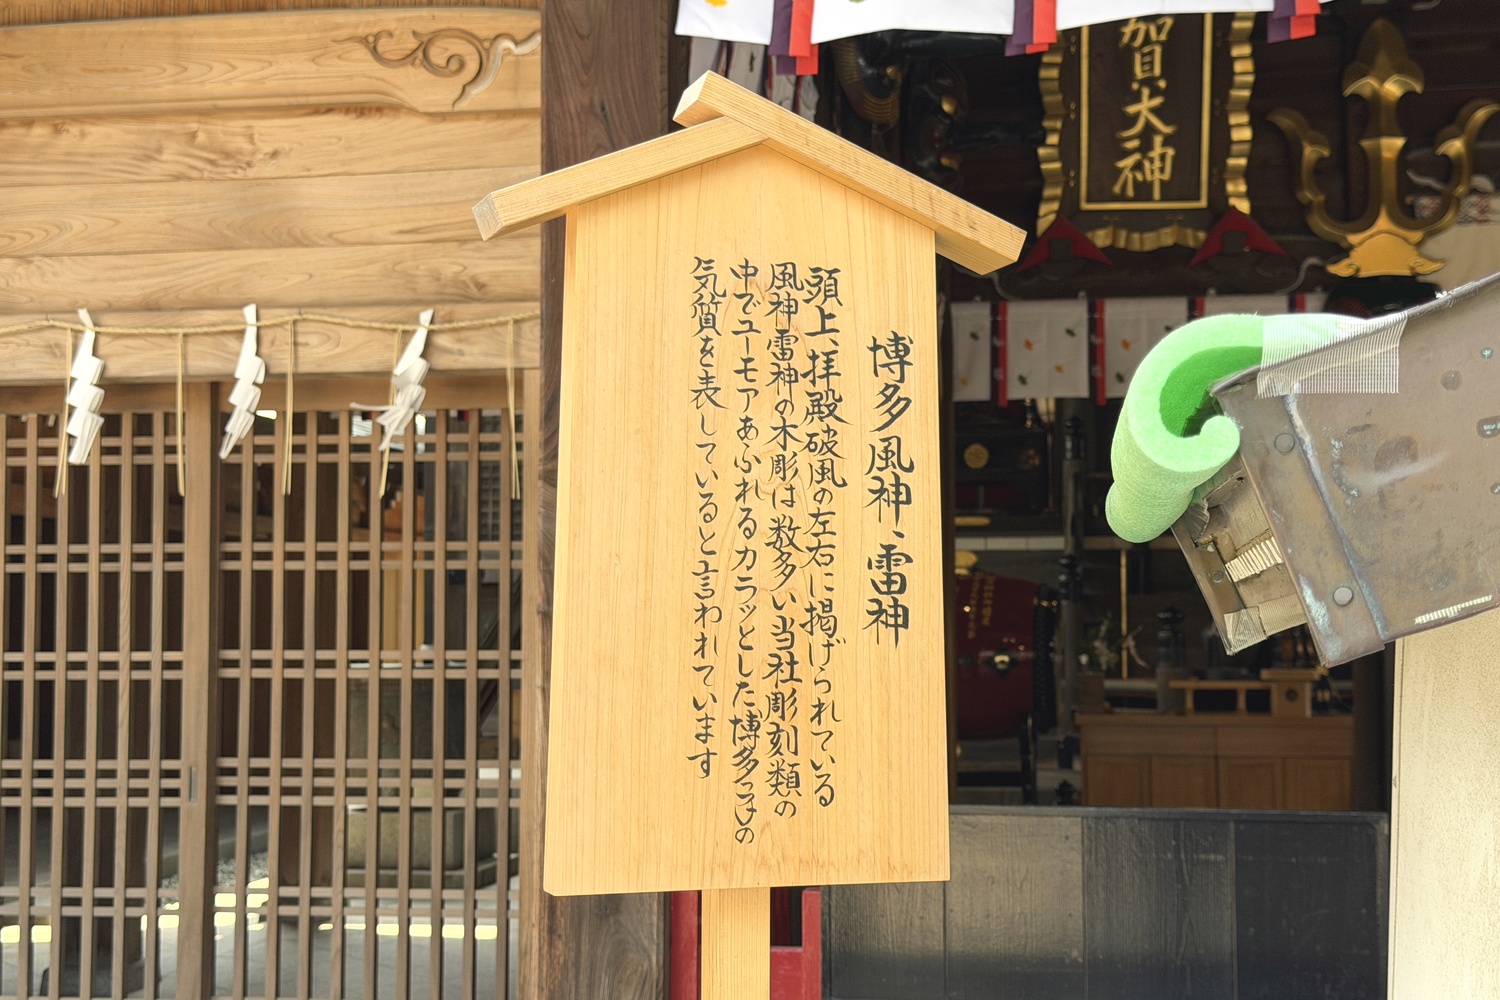 博多風神、雷神
頭上、拝殿破風の左右に掲げられている
風神雷神の木彫は数多い当社彫刻類の
中でユーモアあふれるカラッとした博多っ子の
気質を表していると言われています
加賀大神